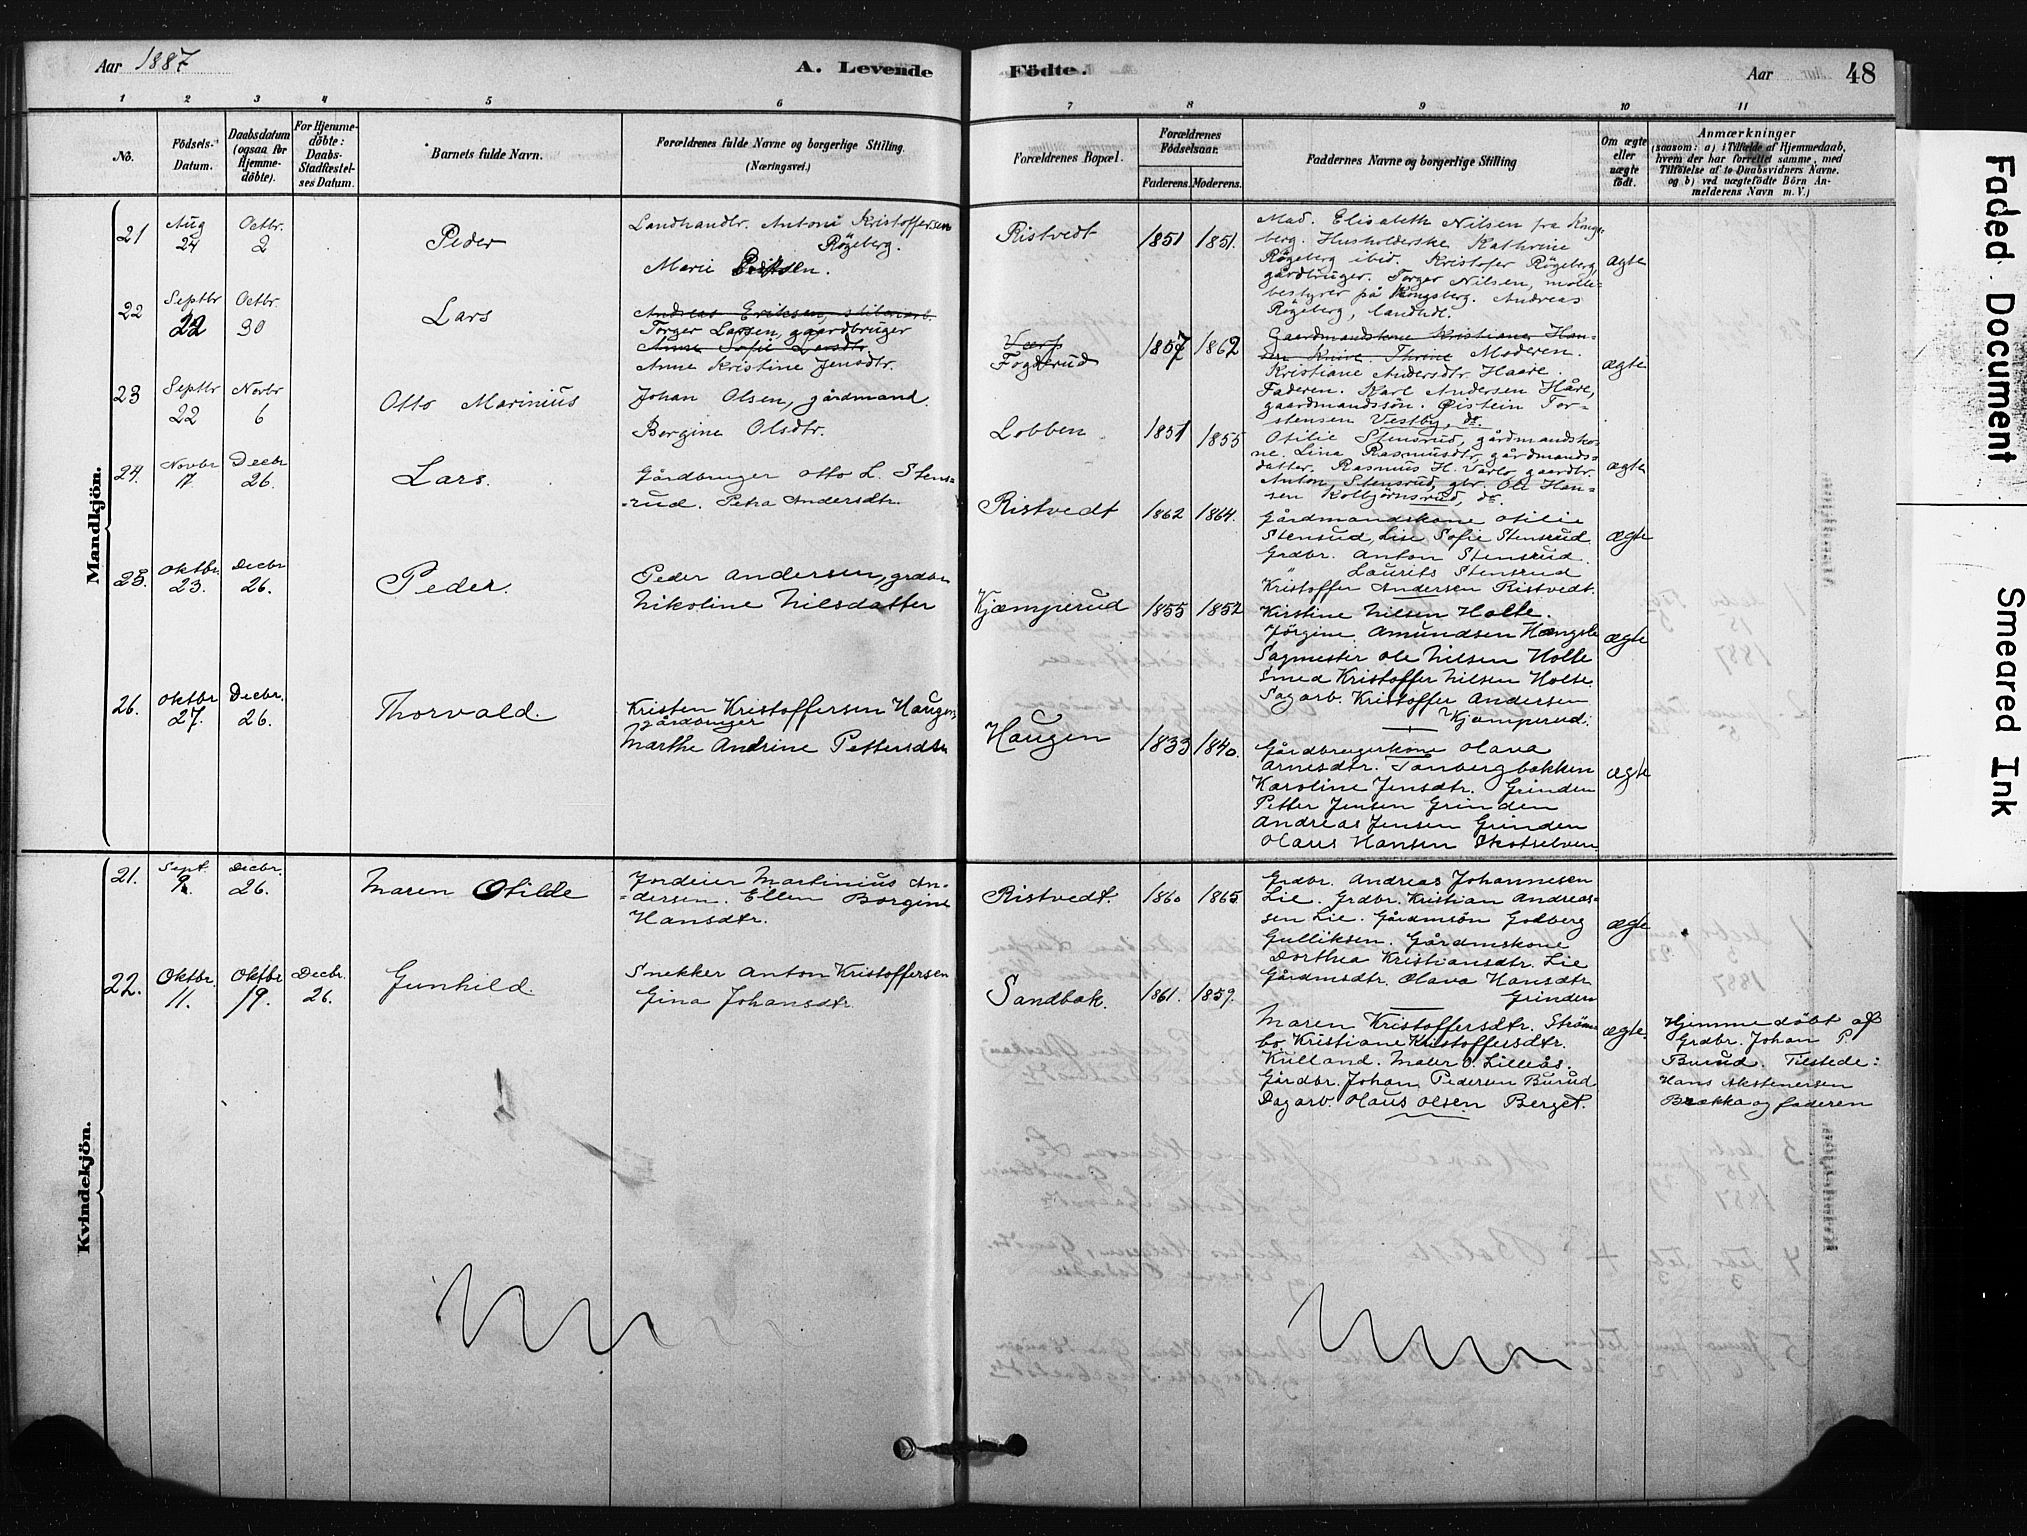 Aar 1887
A. Levende
Födte.
Aar
48
1 2 3 4 5 6
7 8 9 10 11
No.
Födsels-
Datum.
Daabsdatum
(ogsaa for
Hjemme-
döbte).
For Hjemme-
döbte:
Daabs-
Stadfæstel-
ses Datum.
Barnets fulde Navn.
Forældrenes fulde Navne og borgerlige Stilling.
(Næringsvei.)
Forældrenes Bopæl.
Forældrenes
Födselsaar.
Faderens. Moderens.
Faddernes Navne og borgerlige Stilling
Om ægte
eller
uægte
födt.
Anmærkninger
(saasom: a) i Tilfælde af Hjemmedaab,
hvem der har forrettet samme, med
Tilföielse af to Daabsvidners Navne.
og b) ved uægtefödte Börn An-
melderens Navn m. V.)
Mandkjön.
21
Aug
24
Octbr.
2
Peder
Landhandlr. Antoni Kristoffersen
Rögeberg.
Marie
Ristvedt
1851 1851.
Mad. Elisabeth Nilsen fra Kongs-
berg. Husholderske Kathrine
Rögeberg ibid. Kristofer Rögeberg,
gårdbruger. Torger Nilsen, mölle-
bestyrer på Kongsberg. Andreas
Rögeberg, landhdl.
ægte
22
Septbr
22
Octbr.
30
Lars
Andreas Eriksen,
Torger Larsen, gaardbruger
Anne Sofie Larsdtr
Anne Kristine Jensdtr.
Fogderud
1857 1862
Gaardmandskone Kristiane Han-
sen Moderen.
Kristiane Andersdtr. Haare.
Faderen. Karl Andersen Håre,
gaardmandssön. Øistein Tor-
stensen Vestby, do.
ægte
23
Septbr
22
Novbr
6
Otto Marinius
Johan Olsen, gårdmand.
Borgine Olsdtr.
Lobben
1851 1855
Otilie Stensrud, gårdmandsko-
ne. Lina Rasmusdtr, gårdmands-
datter. Rasmus H. Varlo, gaardbr.
Anton Stensrud, gbr. Ole Han-
sen Kolbjørnsrud, do.
ægte
24.
Novbr
17
Decbr
26.
Lars.
Gårdbruger Otto L. Stens-
-rud. Petra Andersdtr.
Ristvedt
1862 1864.
Gårdmandskone Otilie
Stensud, Lise Sofie Stensrud
Grdbr. Anton Stensrud.
" Laurits Stensrud
Kristoffer Andersen Ristvedt.
ægte
25.
Oktbr.
23.
Decbr
26.
Peder.
Peder Andersen, grdbr
Nikoline Nilsdatter
Kjæmperud
1855 1852
Kirstine Nilsen Holte.
Jörgine Amundsen Hængsle
Sagmester Ole Nilsen Holte
Smed Kristoffer Nilsen Holte.
Sagarb. Kristoffer Andersen
Kjæmperud.
ægte
26.
Oktbr
27.
Decbr.
26.
Thorvald.
Kristen Kristoffersen Haugen
Gårdbruger
Marthe Andrine Pettersdtr
Haugen
1833 1840.
Gårdbrugerkone Olava
Arnesdtr. Tanbergbakken
Karoline Jensdtr. Grinden
Petter Jensen Grinden
Andreas Jensen Grinden
Olaus Hansen Skotselven
ægte
Kvindekjön.
21.
Sept.
9.
Decbr.
26.
Maren Otilde
Jordeier Martinius An-
-dersen. Ellen Borgine
Hansdtr.
Ristvedt.
1860 1865
Grdbr. Andreas Johannesen
Lie. Grdbr. Kristian Andreas-
sen Lie. Gårdmsön Godberg
Gulliksen. Gårdmskone
Dorthea Kristiansdtr. Lie
Gårdmsdtr. Olava Hansdtr
Grinden
ægte
22.
Oktbr.
11.
Oktbr
19.
Decbr.
26.
Gunhild.
Snekker Anton Kristoffersen
Gina Johansdtr.
Sandbak.
1861. 1859.
Maren Kristoffersdtr. Ström-
bo. Kristiane Kristoffersdtr.
Kulland. Maler O. Lilleås.
Gårdbr. Johan Pedersen Burud
Dagarb. Olaus Olsen Berget.
ægte.
Hjemmedöbt af
Grdbr. Johan P.
Burud. Tilstede:
Hans Akstenersen
Brækka og faderen
Faded Document
Smeared Ink